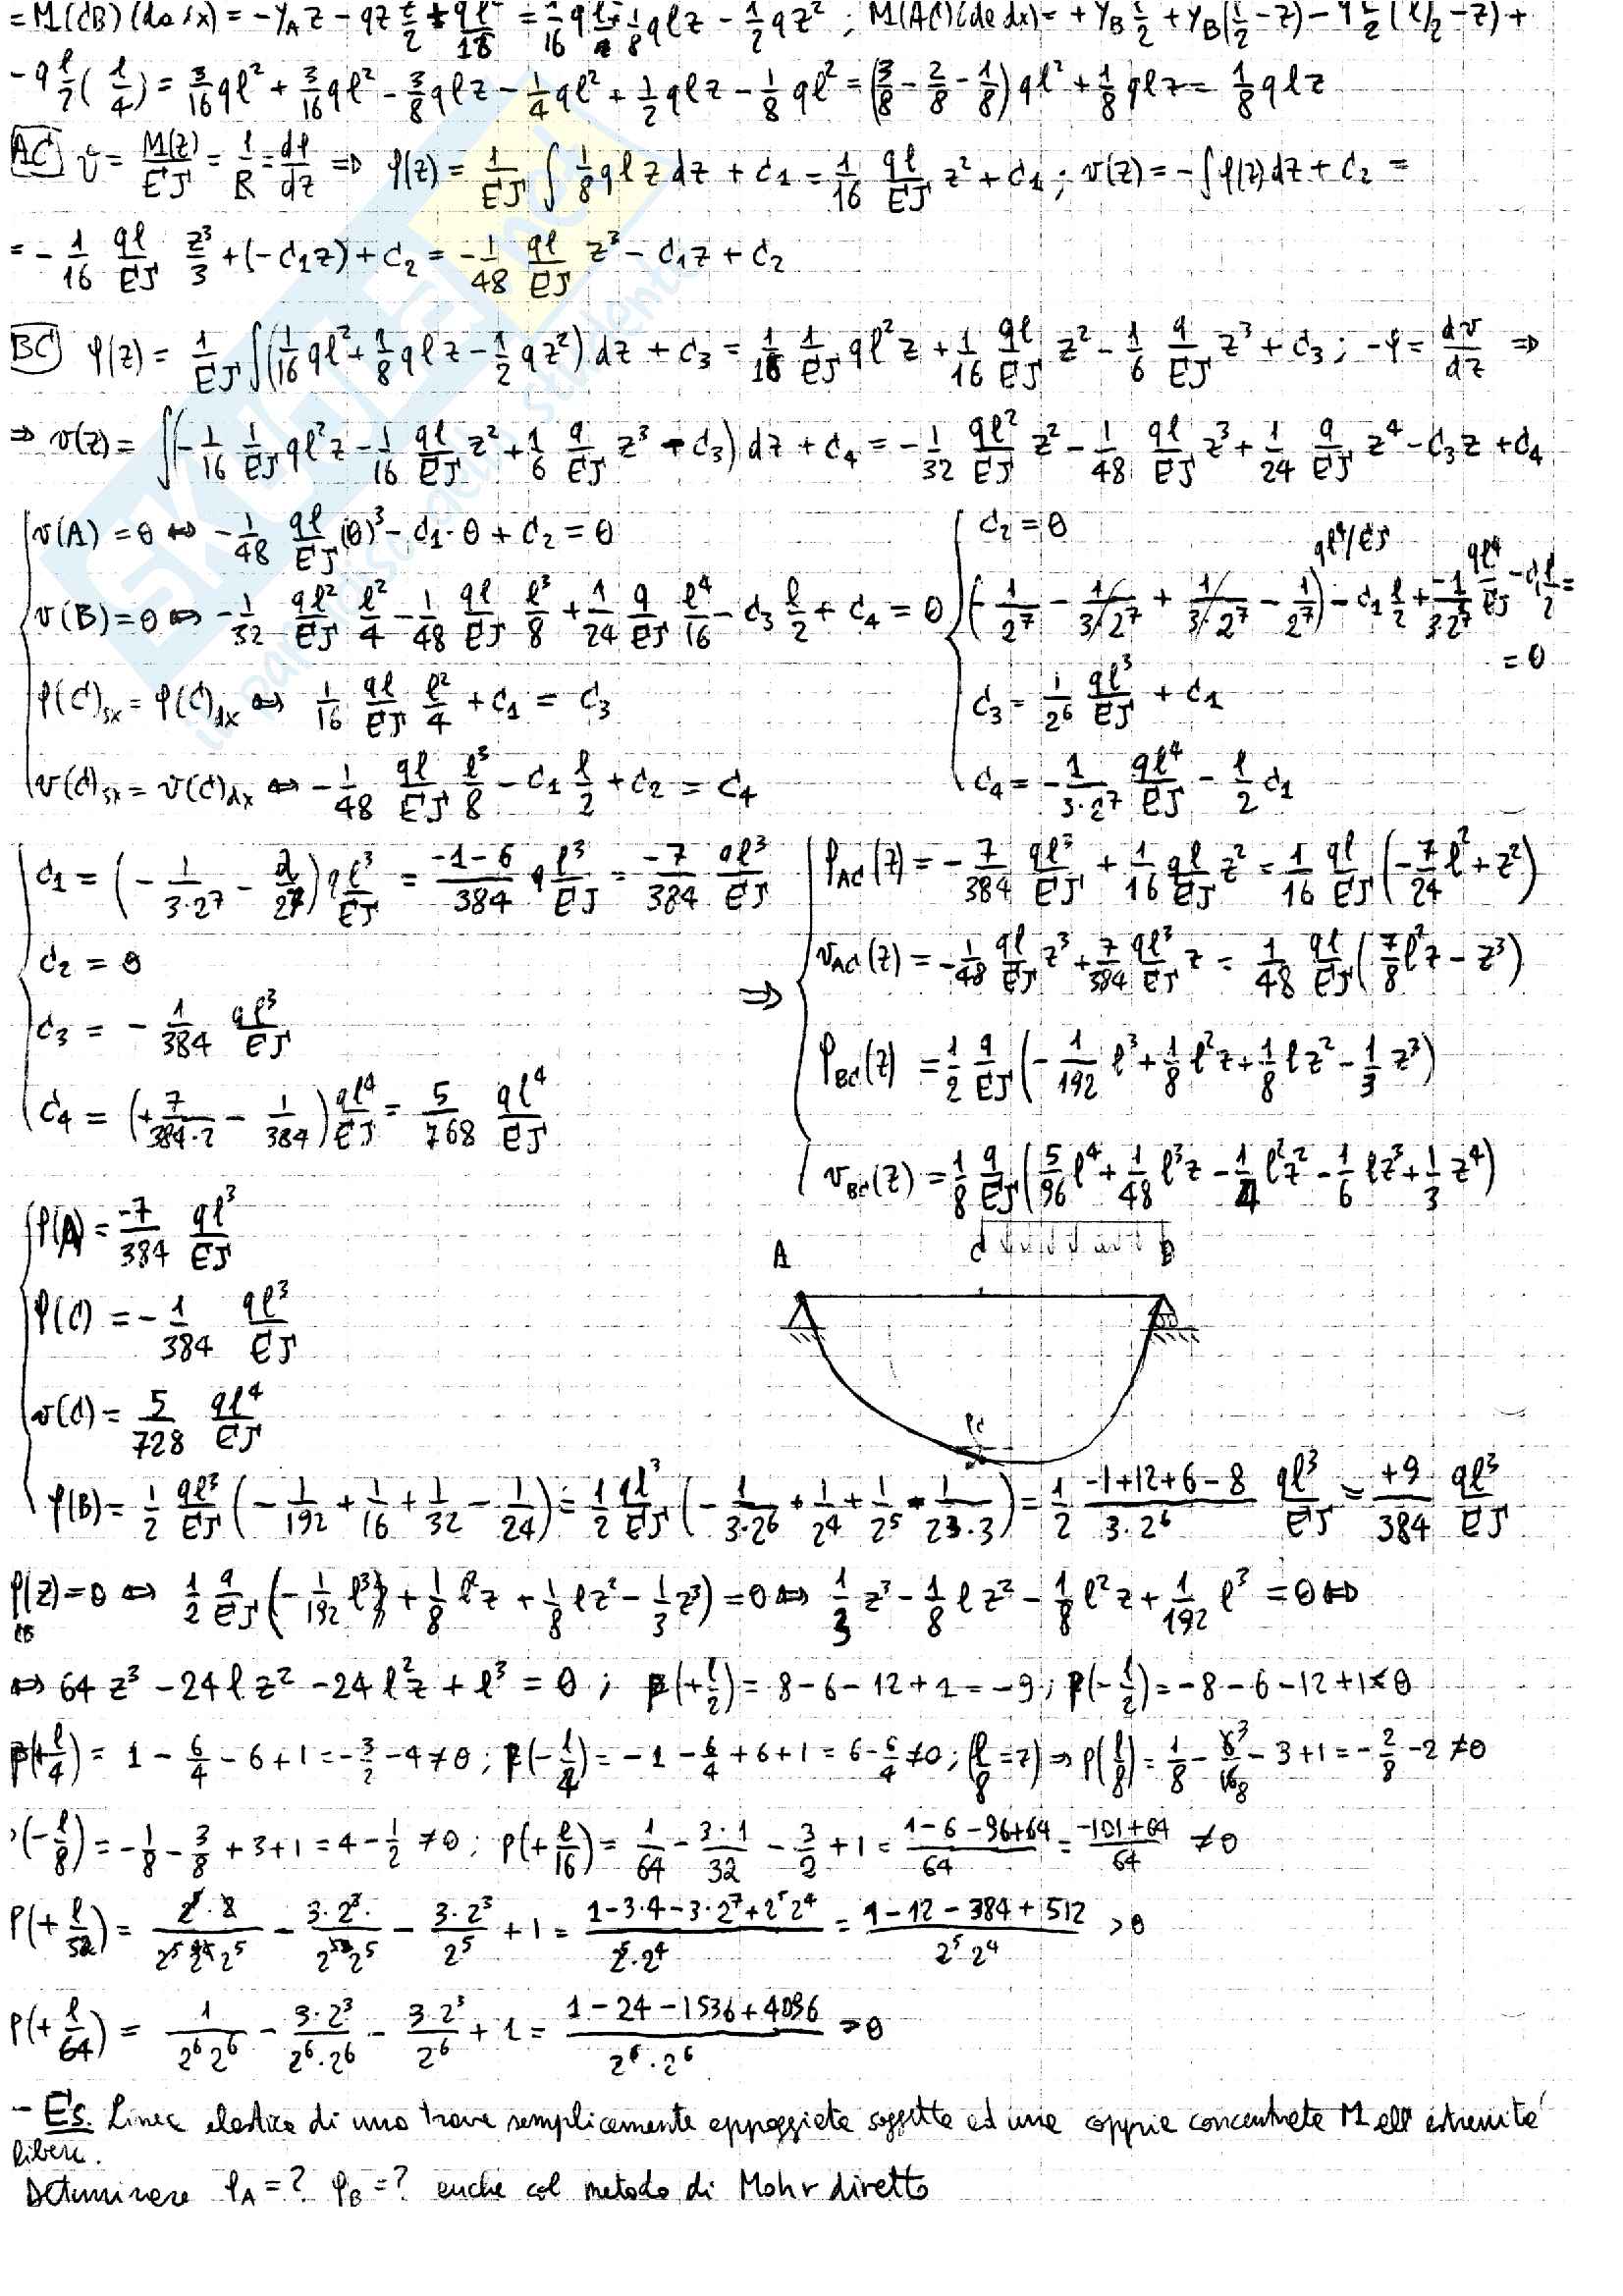 = M(CB)(da sx) = -Y_A z - qz z/2 + ql²/16 = 1/16 ql² + 1/8 qlz - 1/2 qz² ; M(AC)(da dx) = +Y_B l/2 + Y_B(l/2 - z) - q l/2 (l/2 - z) +
- q l/2 (l/4) = 3/16 ql² + 3/16 ql² - 3/8 qlz - 1/4 ql² + 1/2 qlz - 1/8 ql² = (3/8 - 2/8 - 1/8) ql² + 1/8 qlz = 1/8 qlz
AC = M(z)/EJ = 1/R = dφ/dz ⇒ φ(z) = 1/EJ ∫ 1/8 qlz dz + C₁ = 1/16 ql/EJ z² + C₁ ; v(z) = -∫φ(z)dz + C₂ =
= - 1/16 ql/EJ z³/3 + (-C₁z) + C₂ = - 1/48 ql/EJ z³ - C₁z + C₂
BC φ(z) = 1/EJ ∫(1/16 ql² + 1/8 qlz - 1/2 qz²) dz + C₃ = 1/16 1/EJ ql²z + 1/16 ql/EJ z² - 1/6 q/EJ z³ + C₃ ; -φ = dv/dz ⇒
⇒ v(z) = ∫(-1/16 1/EJ ql²z - 1/16 ql/EJ z² + 1/6 q/EJ z³ - C₃) dz + C₄ = - 1/32 ql²/EJ z² - 1/48 ql/EJ z³ + 1/24 q/EJ z⁴ - C₃z + C₄
v(A) = 0 ⇔ - 1/48 ql/EJ (0)³ - C₁·0 + C₂ = 0
v(B) = 0 ⇔ - 1/32 ql²/EJ l²/4 - 1/48 ql/EJ l³/8 + 1/24 q/EJ l⁴/16 - C₃ l/2 + C₄ = 0
φ(C)sx = φ(C)dx ⇔ 1/16 ql/EJ l²/4 + C₁ = C₃
v(C)sx = v(C)dx ⇔ - 1/48 ql/EJ l³/8 - C₁ l/2 + C₂ = C₄
C₂ = 0
(- 1/2⁷ - 1/3·2⁷ + 1/3·2⁷ - 1/2⁷) ql⁴/EJ - C₁ l/2 + -1/3·2⁷ ql⁴/EJ - C₁ l/2 =
= 0
C₃ = 1/2⁶ ql³/EJ + C₁
C₄ = - 1/3·2⁷ ql⁴/EJ - l/2 C₁
C₁ = (- 1/3·2⁷ - 2/2⁷) q l³/EJ = -1-6/384 q l³/EJ = -7/384 ql³/EJ
C₂ = 0
C₃ = - 1/384 ql³/EJ
C₄ = (+7/384·2 - 1/384) ql⁴/EJ = 5/768 ql⁴/EJ
⇒ φAC(z) = - 7/384 ql³/EJ + 1/16 ql/EJ z² = 1/16 ql/EJ (- 7/24 l² + z²)
vAC(z) = - 1/48 ql/EJ z³ + 7/384 ql³/EJ z = 1/48 ql/EJ (7/8 l²z - z³)
φBC(z) = 1/2 q/EJ (- 1/192 l³ + 1/8 l²z + 1/8 lz² - 1/3 z³)
vBC(z) = 1/8 q/EJ (5/96 l⁴ + 1/48 l³z - 1/4 l²z² - 1/6 lz³ + 1/3 z⁴)
φ(A) = -7/384 ql³/EJ
φ(C) = - 1/384 ql³/EJ
v(C) = 5/728 ql⁴/EJ
A C B
φC
φ(B) = 1/2 ql³/EJ (- 1/192 + 1/16 + 1/32 - 1/24) = 1/2 ql³/EJ (- 1/3·2⁶ + 1/2⁴ + 1/2⁵ - 1/2³·3) = 1/2 -1+12+6-8/3·2⁶ ql³/EJ = +9/384 ql³/EJ
φ(z)CB = 0 ⇔ 1/2 q/EJ (- 1/192 l³ + 1/8 l²z + 1/8 lz² - 1/3 z³) = 0 ⇔ 1/3 z³ - 1/8 lz² - 1/8 l²z + 1/192 l³ = 0 ⇔
⇔ 64z³ - 24lz² - 24l²z + l³ = 0 ; P(+l/2) = 8 - 6 - 12 + 1 = -9 ; P(-l/2) = -8 - 6 - 12 + 1 < 0
P(+l/4) = 1 - 6/4 - 6 + 1 = - 3/2 - 4 ≠ 0 ; P(-l/4) = -1 - 6/4 + 6 + 1 = 6 - 6/4 ≠ 0 ; (l/8 = z) ⇒ P(l/8) = 1/8 - 3/8 - 3 + 1 = - 2/8 - 2 ≠ 0
P(-l/8) = - 1/8 - 3/8 + 3 + 1 = 4 - 1/2 ≠ 0 ; P(+l/16) = 1/64 - 3·1/32 - 3/2 + 1 = 1-6-96+64/64 = -101+64/64 ≠ 0
P(+l/32) = 2⁵·2/2⁵2⁵2⁵ - 3·2³/2⁵2⁵ - 3·2³/2⁵ + 1 = 1-3·4-3·2⁷+2⁵2⁴/2⁵·2⁴ = 1-12-384+512/2⁵2⁴ > 0
P(+l/64) = 1/2⁶2⁶ - 3·2³/2⁶·2⁶ - 3·2³/2⁶ + 1 = 1-24-1536+4096/2⁶·2⁶ > 0
- Es. Linea elastica di una trave semplicemente appoggiata soggetta ad una coppia concentrata M all'estremità
libera.
Determinare φA = ? φB = ? anche col metodo di Mohr diretto